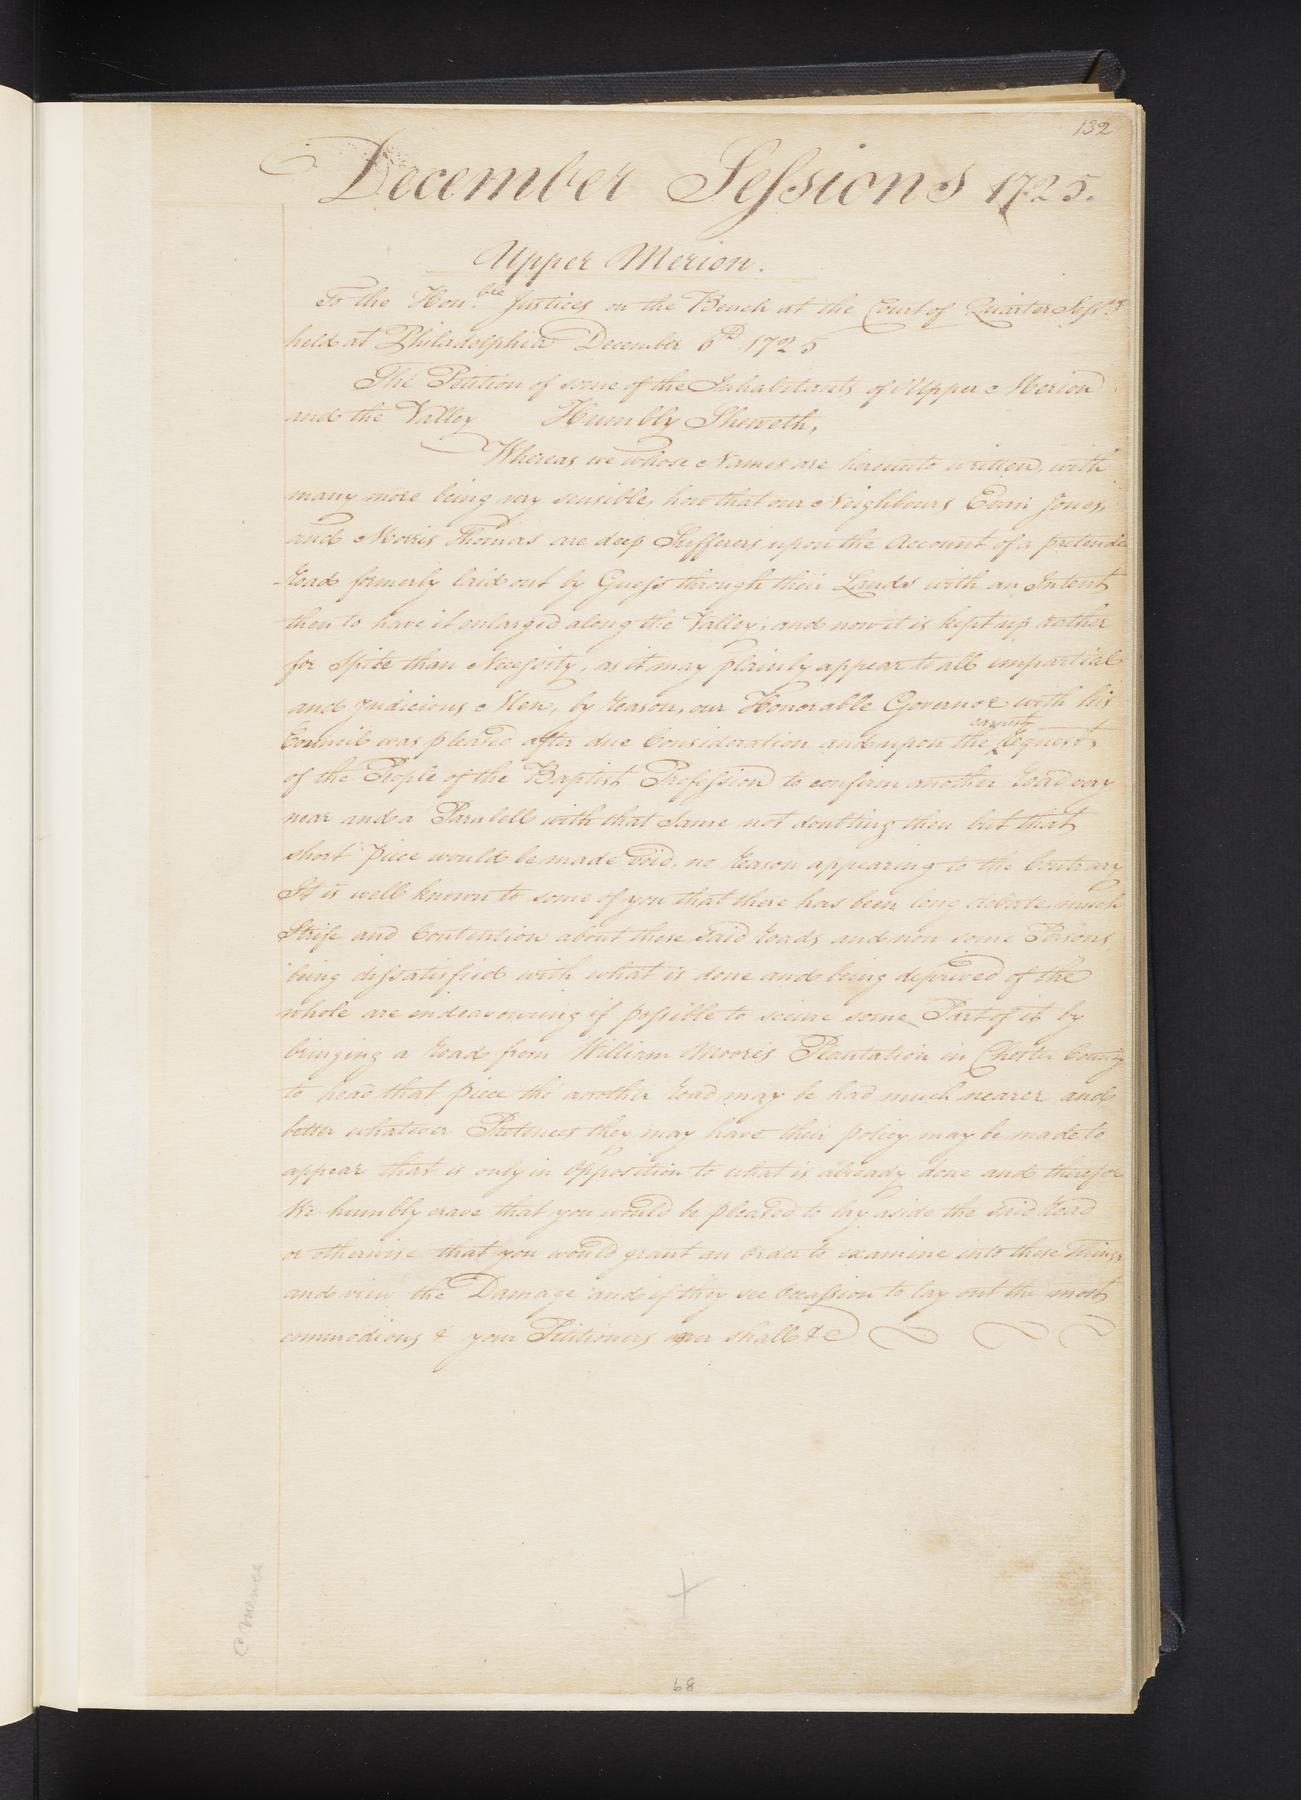 132
December Sessions 1725.
Upper Merion.
To the Hon.ble Justices on the Bench at the Court of Quarter Sess.ns
held at Philadelphia December 6th 1725
The Petition of some of the Inhabitants of Upper Merion
and the Valley Humbly Sheweth,
Whereas we whose Names are hereunto written, with
many more being very sensible, how that our Neighbours Evan Jones,
and Morris Thomas are deep Sufferers upon the Account of a pretende
Road formerly laid out by Guess through their Lands with an Intent
then to have it enlarged along the Valley, and now it is kept up rather
for Spite than Necessity, as it may plainly appear to all impartial
and judicious Men, by reason, our Honorable Governor with his
Council was pleased after due Consideration and upon the earnest Request
of the People of the Baptist Profession to confirm another Road very
near and a Paralell with that Same not doubting then but that
short Piece would be made void, no reason appearing to the Contrary
It is well known to some of you that there has been long debate much
Strife and Contention about these said roads and now some Persons
being dissatisfied with what is done and being deprived of the
whole are endeavouring if possible to secure some Part of it by
bringing a road from William Moore's Plantation in Chester County
to head that piece tho' another road may be had much nearer and
better whatever Pretences they may have their policy may be made to
appear that is only in Opposition to what is already done and therefore
We humbly crave that you would be pleased to lay aside the said Road
or otherwise that you would grant an Order to examine into these Things
and view the Damage and if they see Occassion to lay out the most
commodious & your Petitioners ever shall &c
68